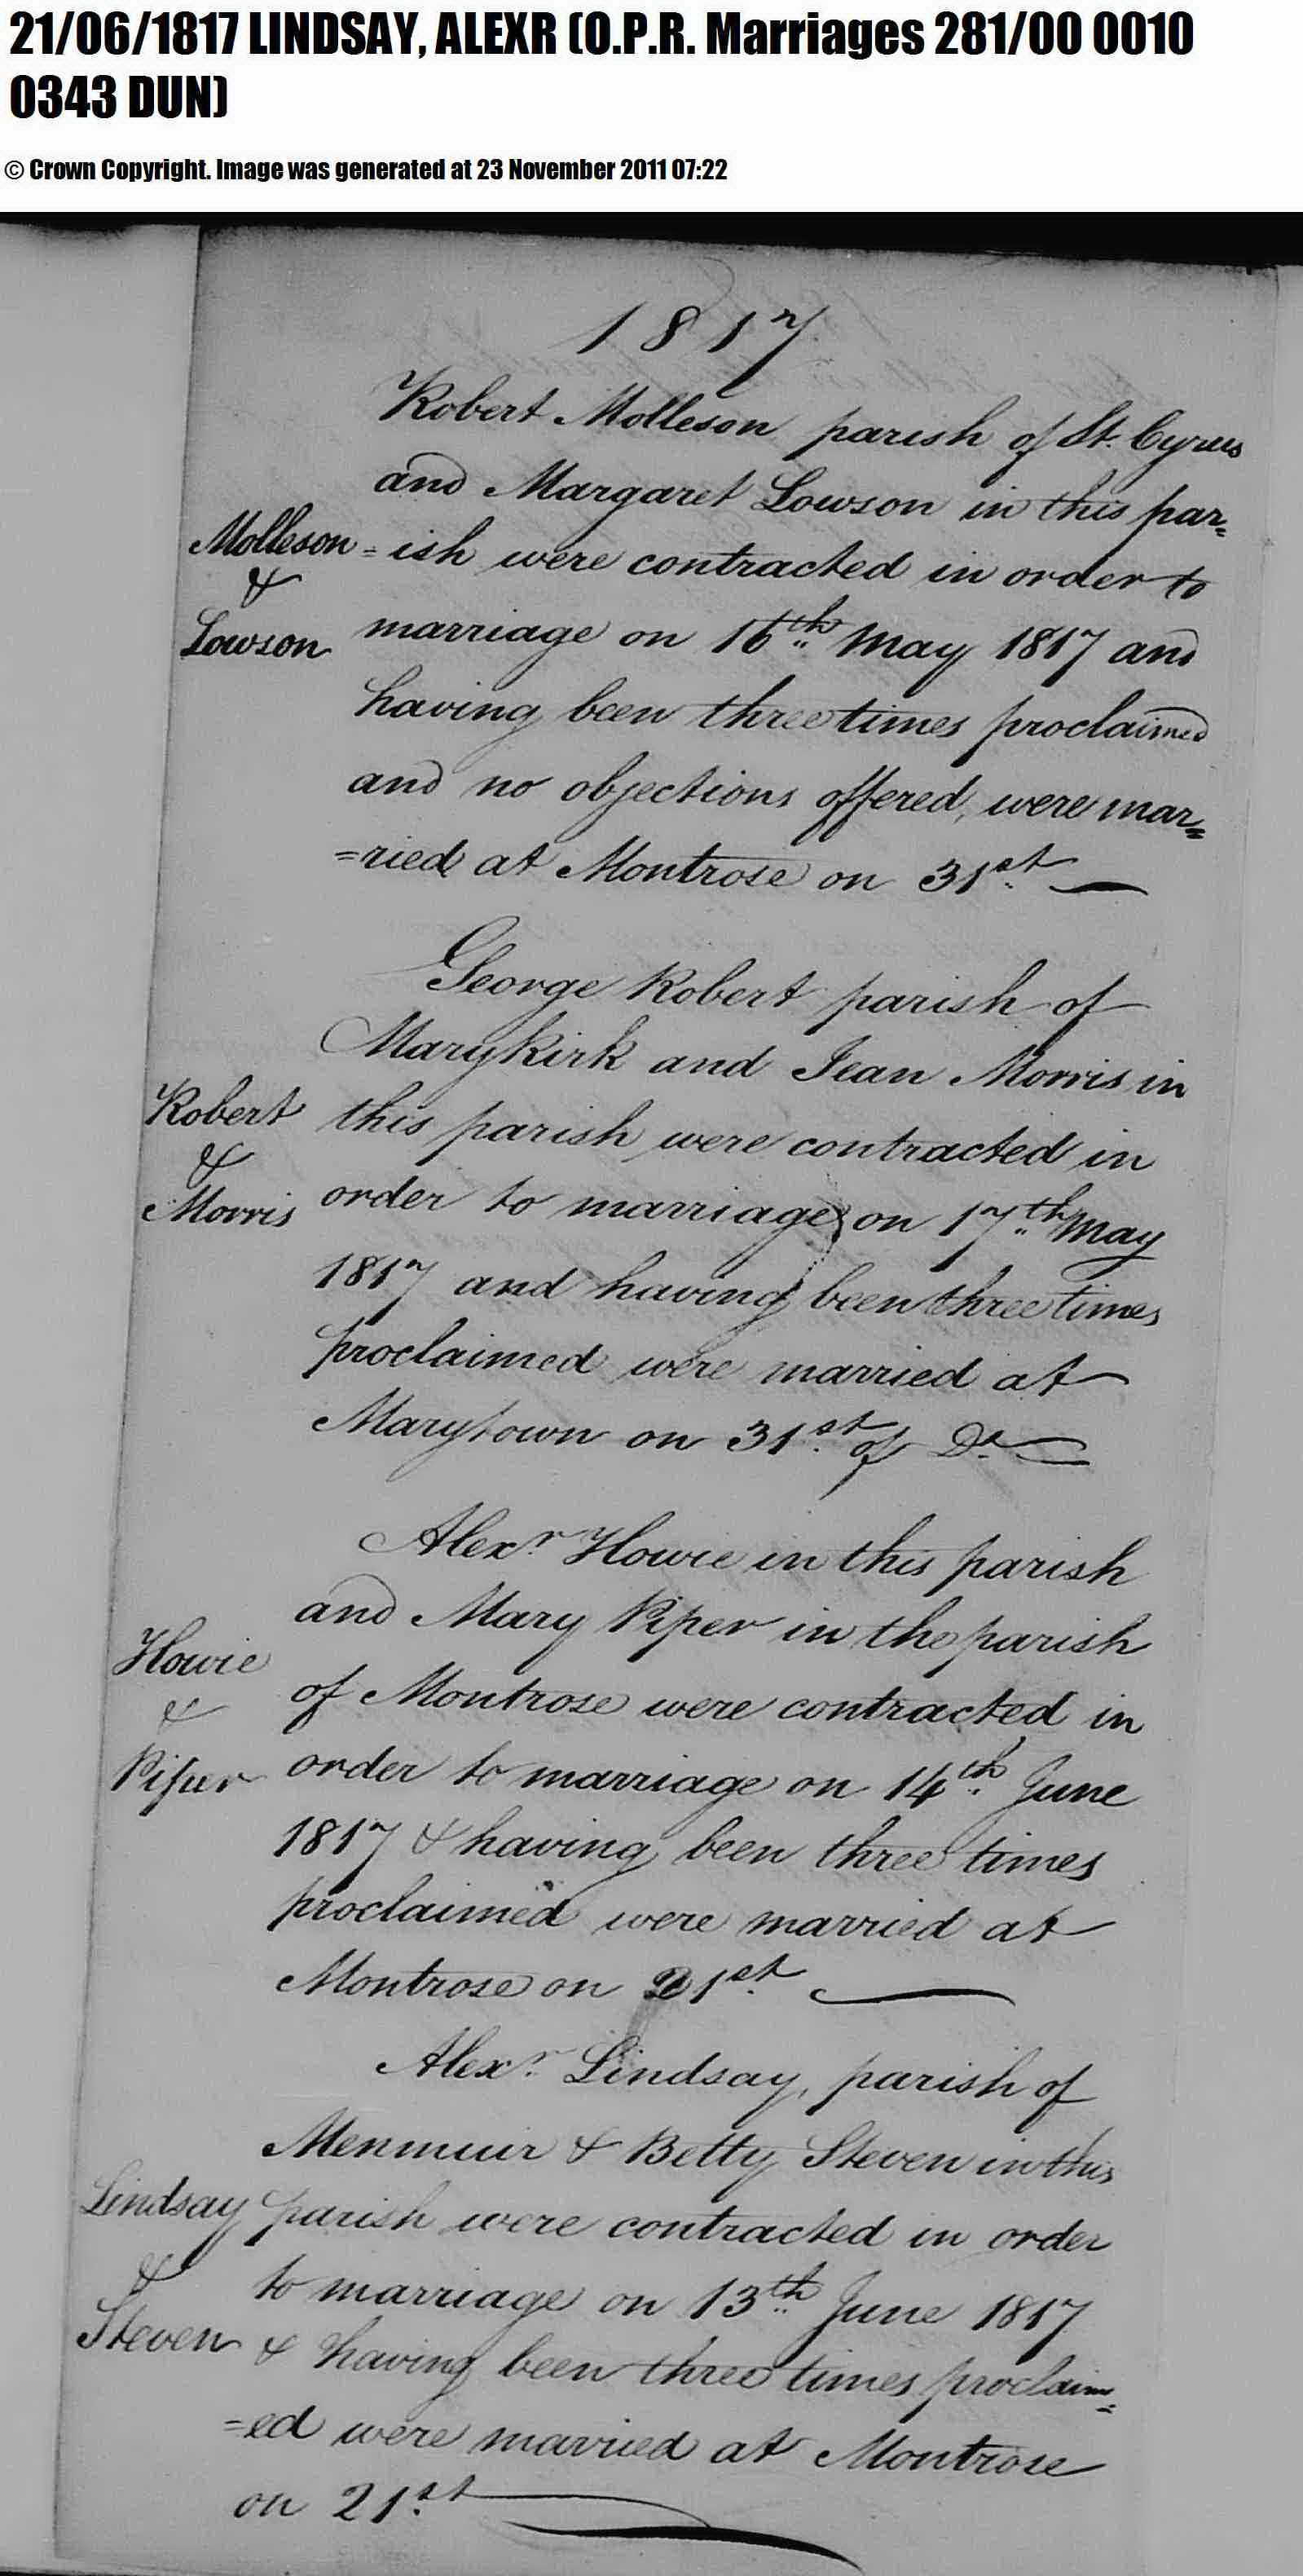 21/06/1817 LINDSAY, ALEXR (O.P.R. Marriages 281/00 0010
0343 DUN)
© Crown Copyright. Image was generated at 23 November 2011 07:22
1817
Robert Molleson parish of St. Cyrus
and Margaret Lowson in this par=
Molleson =ish were contracted in order to
&
Lowson marriage on 16th May 1817 and
having been three times proclaimed
and no objections offered, were mar=
=ried at Montrose on 31st.
George Robert parish of
Marykirk and Jean Morris in
Robert this parish were contracted in
&
Morris order to marriage on 17th May
1817 and having been three times
proclaimed were married at
Marytown on 31st. of Do.
Alexr. Howie in this parish
and Mary Piper in the parish
Howie of Montrose were contracted in
&
Piper order to marriage on 14th June
1817 & having been three times
proclaimed were married at
Montrose on 21st.
Alexr. Lindsay, parish of
Menmuir & Betty Steven in this
Lindsay parish were contracted in order
&
to marriage on 13th June 1817
Steven & having been three times proclaim=
=ed were married at Montrose
on 21st.